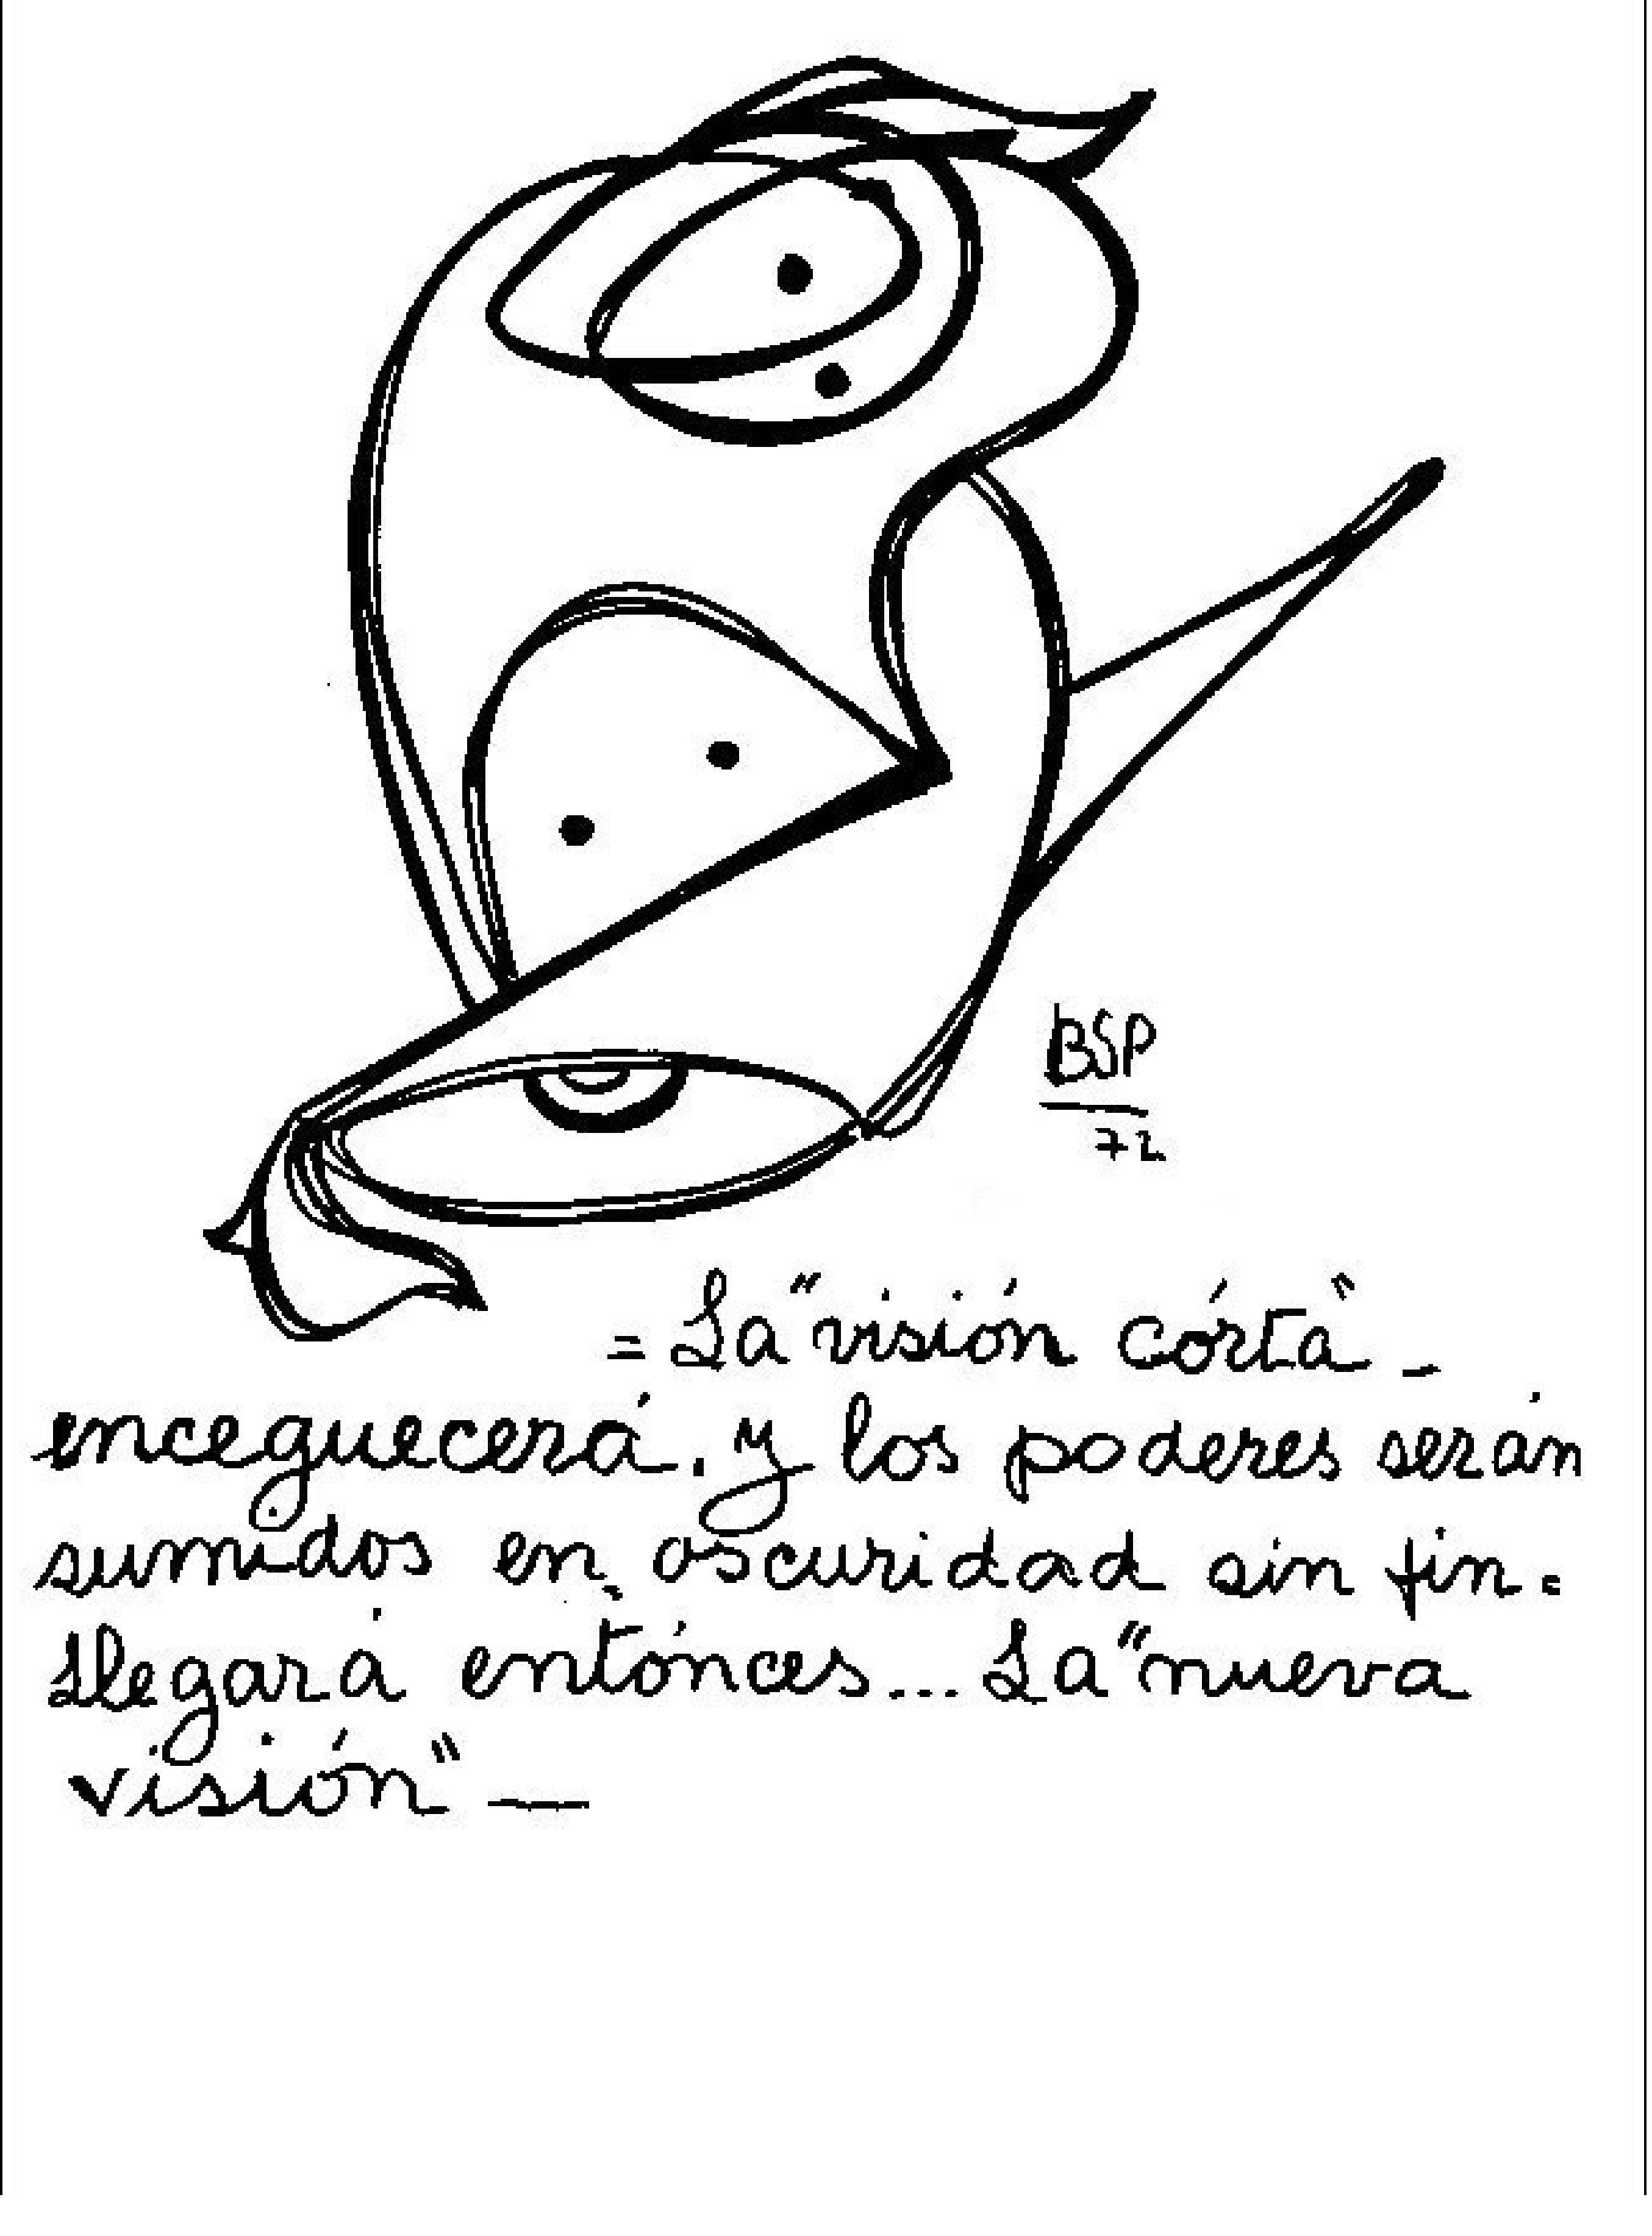 BSP
72
= La "visión córta" -
enceguecerá. y los poderes serán
sumidos en oscuridad sin fin.=
Llegará entónces... La "nueva
visión" —